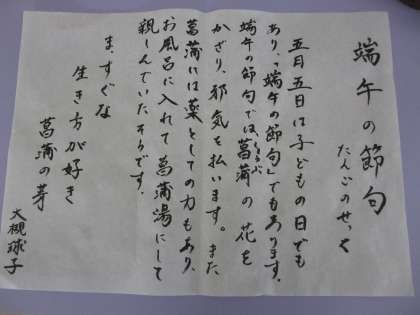 端午の節句
たんごのせっく
五月五日は子どもの日でも
あり、「端午の節句」でもあります。
端午の節句では、菖蒲の花を
しょうぶ
かざり、邪気を払います。また
菖蒲には薬としての力もあり、
お風呂に入れて菖蒲湯にして
親しんでいたそうです。
ま、すぐな
生き方が好き
菖蒲の芽
大槻球子